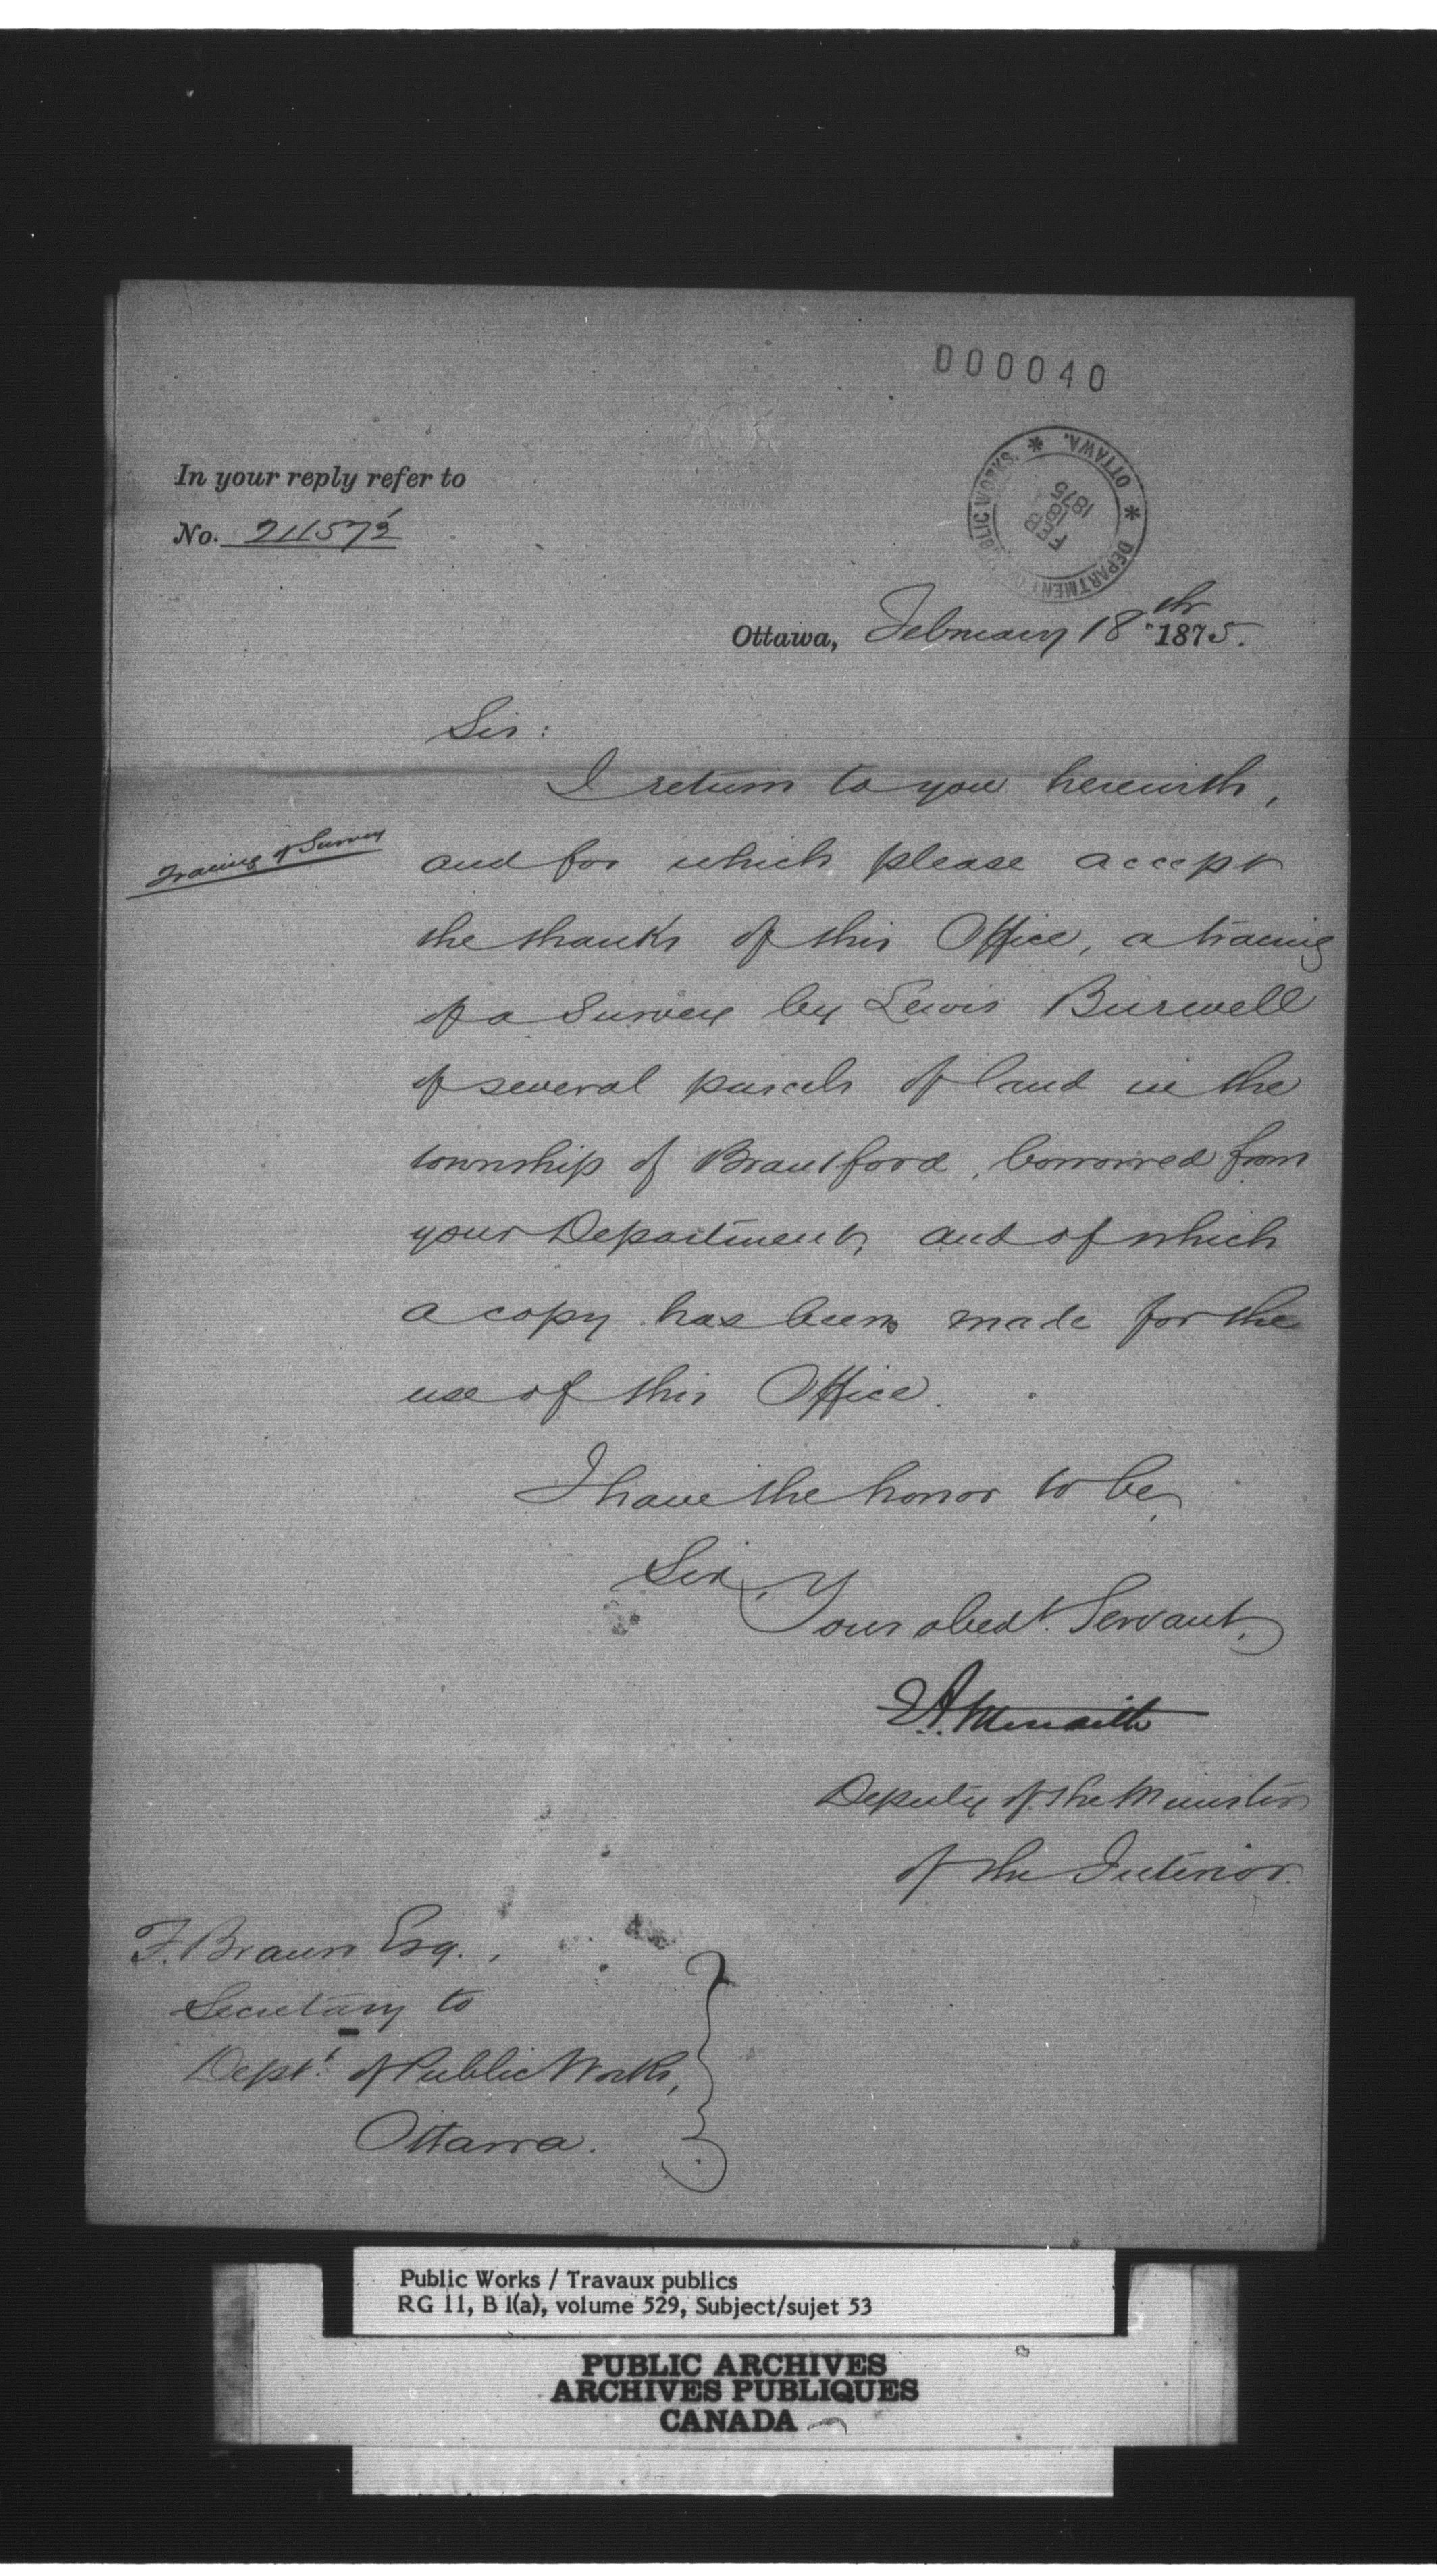 000040
In your reply refer to
No.
* DEPARTMENT OF PUBLIC WORKS. * OTTAWA.
FEB 18
1875
Ottawa, February 18th 1875.
Sir:
I return to you herewith,
Tracing of Survey
and for which please accept
the thanks of this Office, a tracing
of a Survey by Lewis Burwell
of several parcels of land in the
township of Brantford, borrowed from
your Department, and of which
a copy has been made for the
use of this Office.
I have the honor to be,
Sir,
Your obedt. Servant,
E.A. Meredith
Deputy of the Minister
of the Interior.
F. Braun Esq.,
Secretary to
Dept. of Public Works,
Ottawa.
Public Works / Travaux publics
RG 11, B 1(a), volume 529, Subject/sujet 53
PUBLIC ARCHIVES
ARCHIVES PUBLIQUES
CANADA